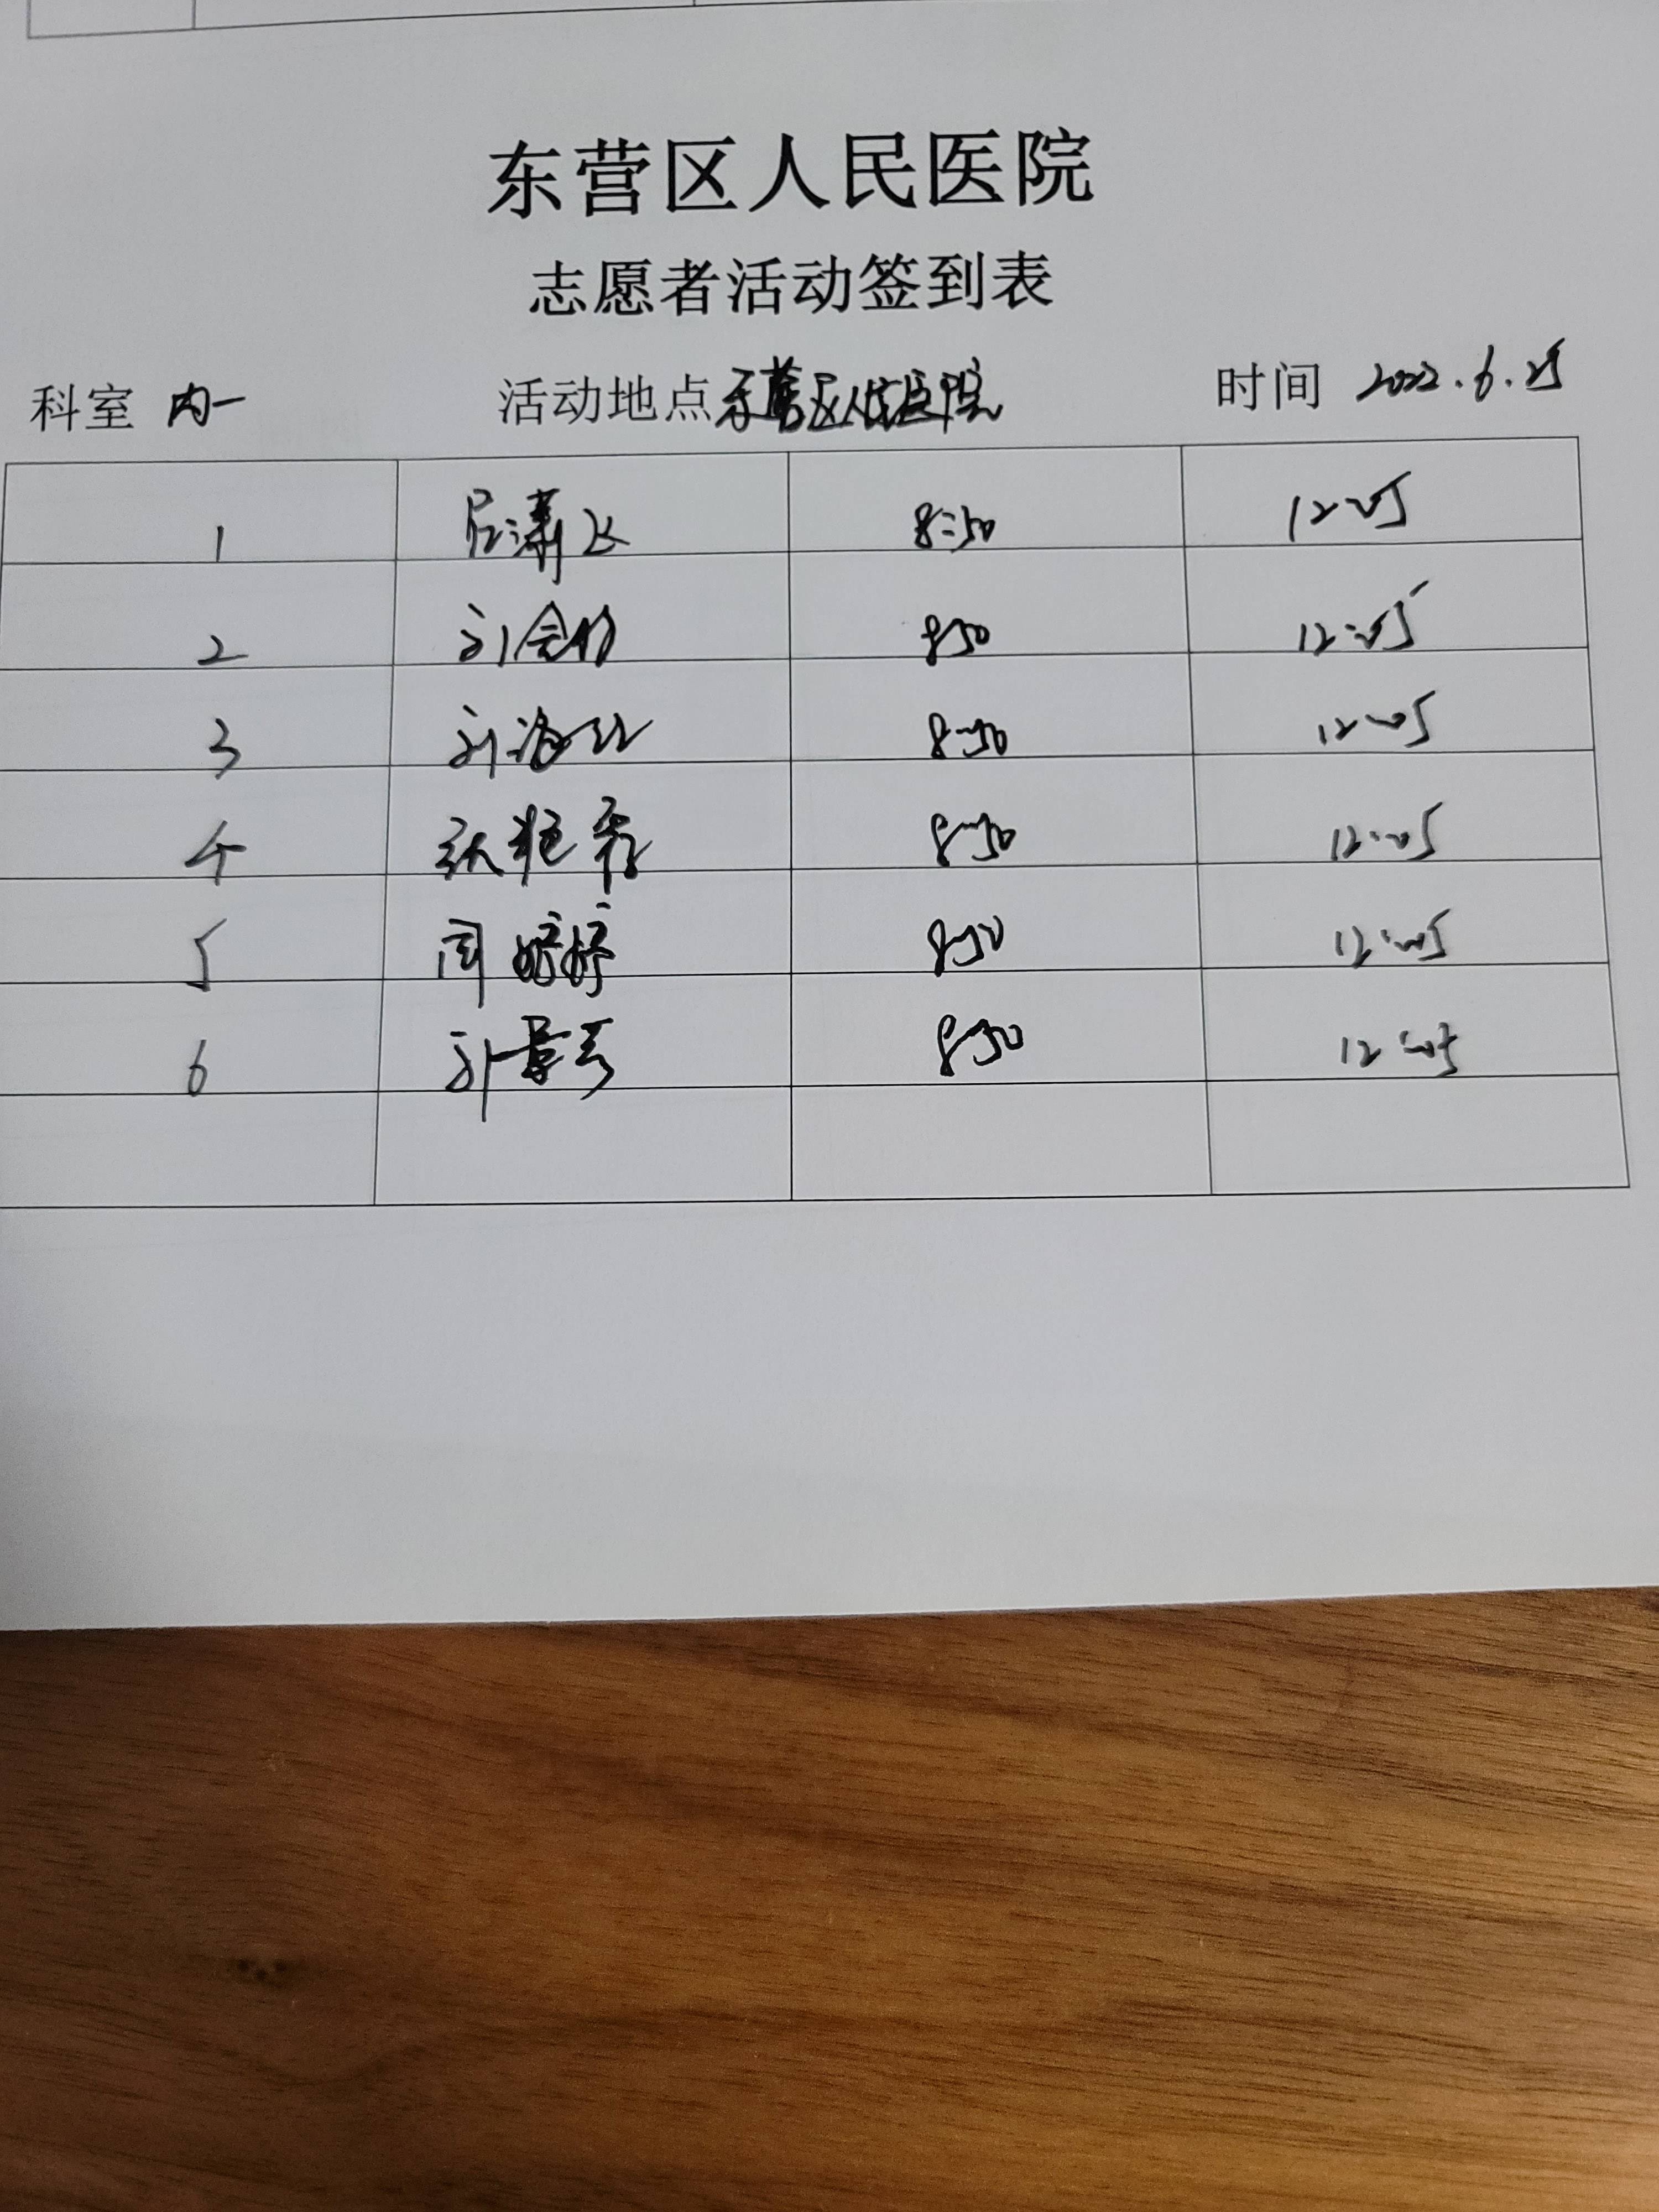 东营区人民医院
志愿者活动签到表
科室 内一 活动地点 东营区人民医院 时间 2022.6.25
1 8:50 12:05
2 刘会 8:50 12:05
3 刘海 8:50 12:05
4 张艳霞 8:50 12:05
5 周婷婷 8:50 12:05
6 刘景云 8:50 12:05